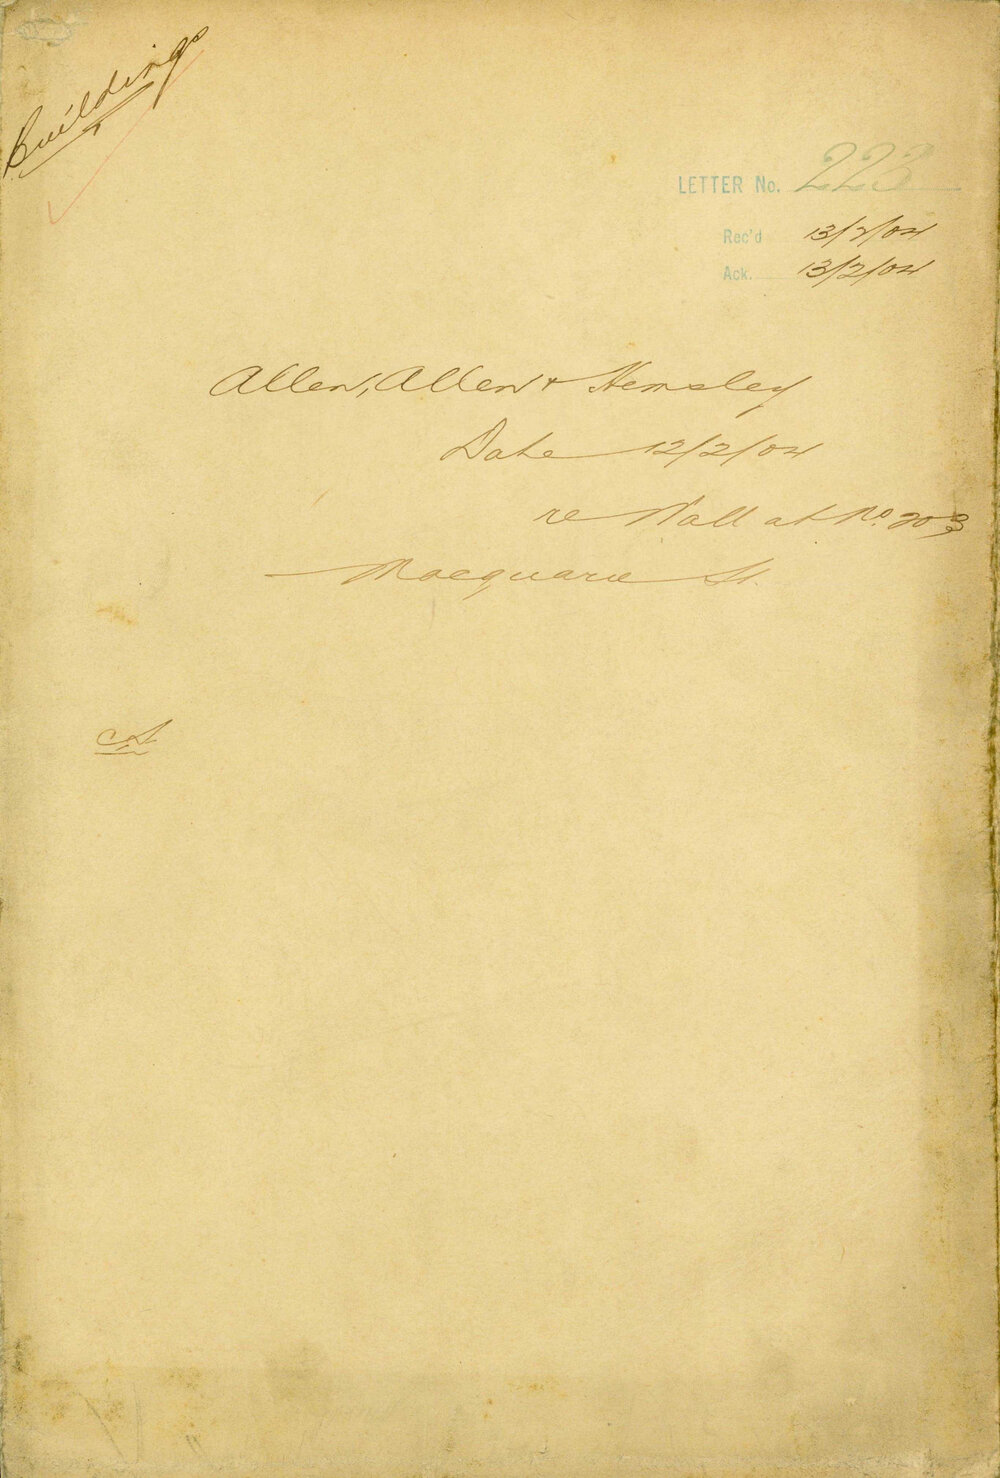 Buildings
LETTER No. 223
Rec'd 13/2/04
Ack. 13/2/04
Allen, Allen & Hemsley
Date 12/2/04
re Wall at No. 203
Macquarie St.